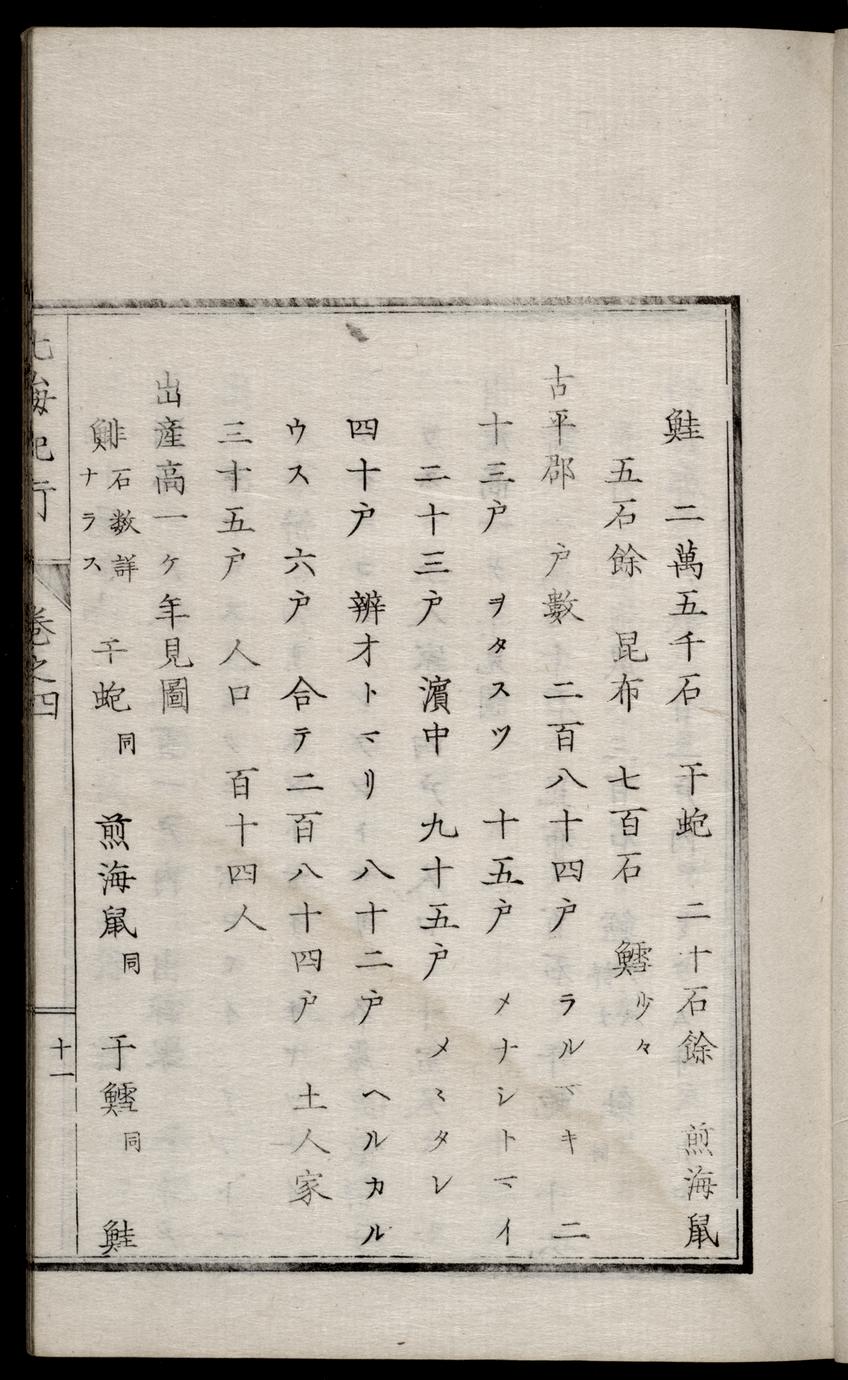 鮭　二萬五千石　干蚫　二十石餘　煎海鼠
五石餘　昆布　七百石　鱈少々
古平郡　戸數　二百八十四戸　ラルマキ　二
十三戸　ヲタスツ　十五戸　メナシトマイ
二十三戸　濱中　九十五戸　メミタレ
四十戸　辨才トマリ　八十二戸　ヘルカル
ウス　六戸　合テ二百八十四戸　土人家
三十五戸　人口　百十四人
出産高一ケ年見圖
鯡石数詳ナラス　干蚫同　煎海鼠同　干鱈同　鮭
北海紀行　卷之四　十一